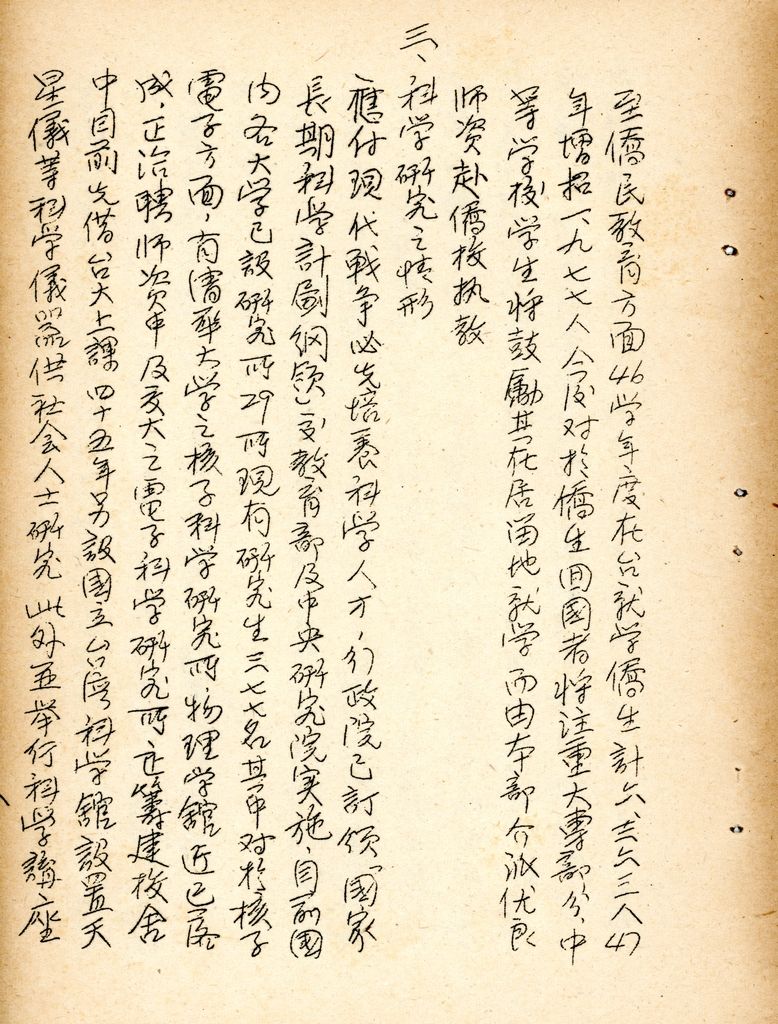 至僑民教育方面46学年度在台就学僑生計六、三六三人47
年增招一、九七七人今后对於僑生回國者将注重大專部分、中
等学校学生将鼓勵其在居留地就学而由本部介派优良
师资赴僑校执教
三、科学研究之情形
應付現代戰争必先培养科学人才，行政院已訂頒「國家
長期科学計劃纲领」交教育部及中央研究院实施、目前國
内各大学已設研究所29所現有研究生三七七名其中对於核子
電子方面，有清華大学之核子科学研究所物理学館近已落
成，正洽聘师资中及交大之電子科学研究所正籌建校舍
中目前先借台大上課四十五年另設國立台湾科学館設置天
星儀等科学儀器供社会人士研究此外並举行科学講座